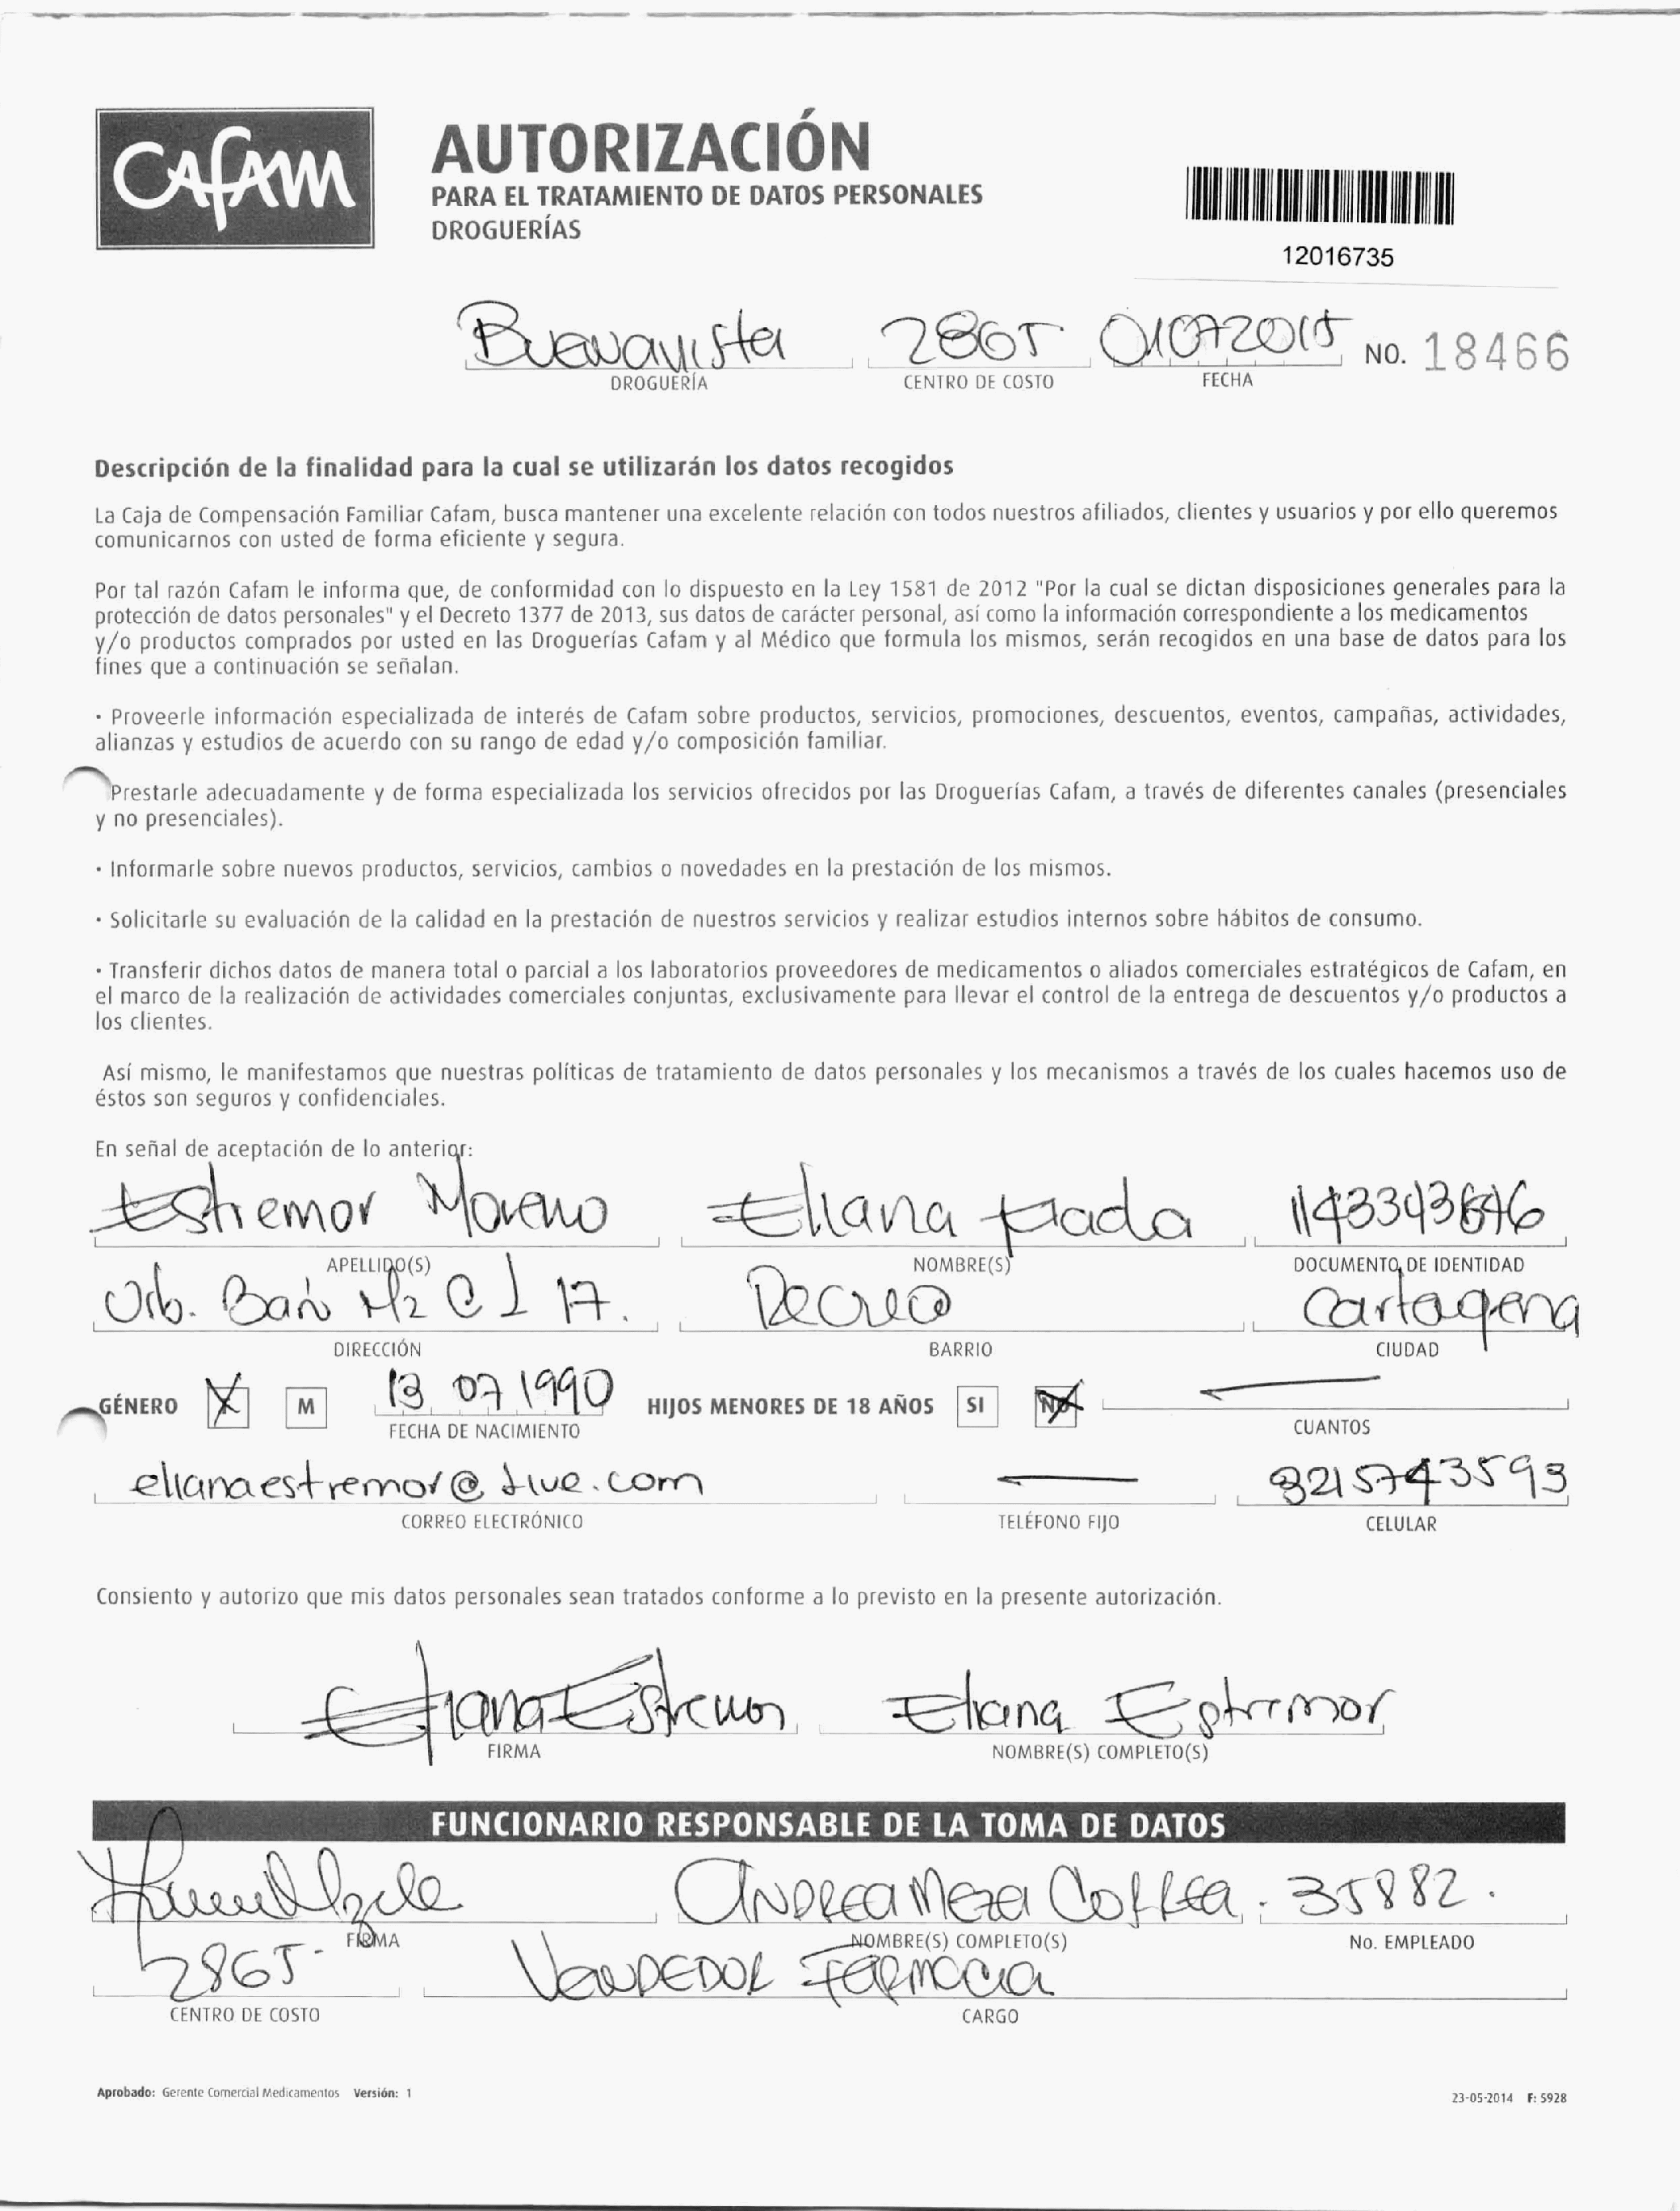 Cafam
AUTORIZACIÓN
PARA EL TRATAMIENTO DE DATOS PERSONALES
DROGUERÍAS
12016735
Buenavista 2865 01072015 NO. 18466
DROGUERÍA CENTRO DE COSTO FECHA
Descripción de la finalidad para la cual se utilizarán los datos recogidos
La Caja de Compensación Familiar Cafam, busca mantener una excelente relación con todos nuestros afiliados, clientes y usuarios y por ello queremos
comunicarnos con usted de forma eficiente y segura.
Por tal razón Cafam le informa que, de conformidad con lo dispuesto en la Ley 1581 de 2012 "Por la cual se dictan disposiciones generales para la
protección de datos personales" y el Decreto 1377 de 2013, sus datos de carácter personal, así como la información correspondiente a los medicamentos
y/o productos comprados por usted en las Droguerías Cafam y al Médico que formula los mismos, serán recogidos en una base de datos para los
fines que a continuación se señalan.
· Proveerle información especializada de interés de Cafam sobre productos, servicios, promociones, descuentos, eventos, campañas, actividades,
alianzas y estudios de acuerdo con su rango de edad y/o composición familiar.
Prestarle adecuadamente y de forma especializada los servicios ofrecidos por las Droguerías Cafam, a través de diferentes canales (presenciales
y no presenciales).
· Informarle sobre nuevos productos, servicios, cambios o novedades en la prestación de los mismos.
· Solicitarle su evaluación de la calidad en la prestación de nuestros servicios y realizar estudios internos sobre hábitos de consumo.
· Transferir dichos datos de manera total o parcial a los laboratorios proveedores de medicamentos o aliados comerciales estratégicos de Cafam, en
el marco de la realización de actividades comerciales conjuntas, exclusivamente para llevar el control de la entrega de descuentos y/o productos a
los clientes.
Así mismo, le manifestamos que nuestras políticas de tratamiento de datos personales y los mecanismos a través de los cuales hacemos uso de
éstos son seguros y confidenciales.
En señal de aceptación de lo anterior:
Estremor Moreno Eliana
APELLIDO(S) NOMBRE(S) DOCUMENTO DE IDENTIDAD
Urb. 17. Recreo Cartagena
DIRECCIÓN BARRIO CIUDAD
GÉNERO M 13 07 1990 HIJOS MENORES DE 18 AÑOS SI NO
FECHA DE NACIMIENTO CUANTOS
elianaestremor@live.com 3215743593
CORREO ELECTRÓNICO TELÉFONO FIJO CELULAR
Consiento y autorizo que mis datos personales sean tratados conforme a lo previsto en la presente autorización.
Eliana Estremor Eliana Estremor
FIRMA NOMBRE(S) COMPLETO(S)
FUNCIONARIO RESPONSABLE DE LA TOMA DE DATOS
Andrea Meza Correa. 35882.
FIRMA NOMBRE(S) COMPLETO(S) No. EMPLEADO
2865. VENDEDOR FARMACIA
CENTRO DE COSTO CARGO
Aprobado: Gerente Comercial Medicamentos Versión: 1
23-05-2014 F: 5928